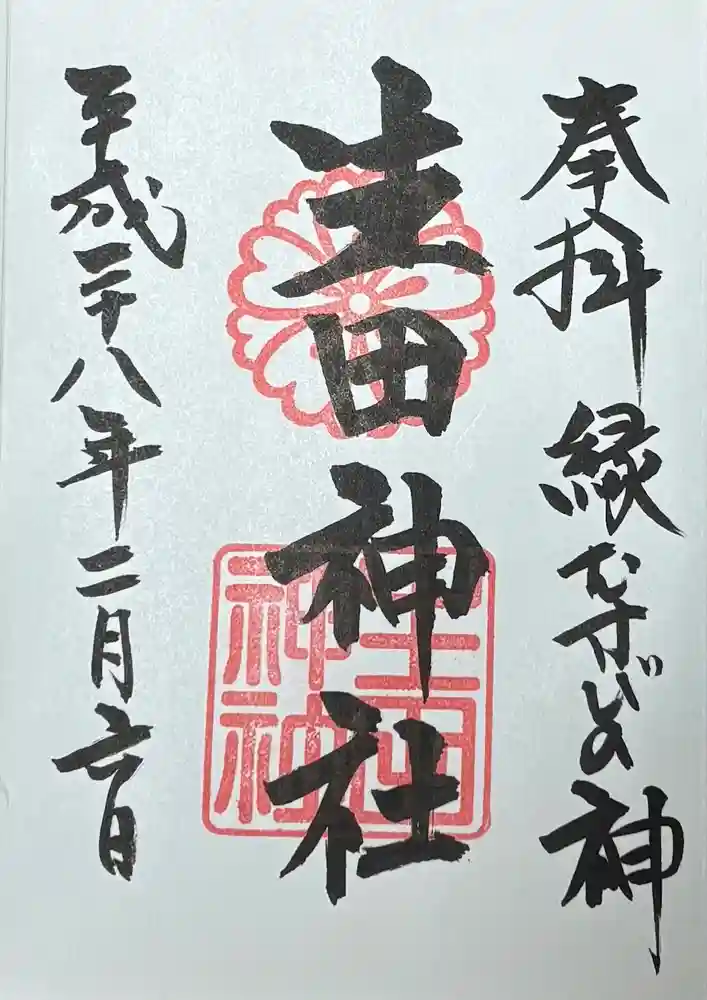 奉拝 縁むすびの神
生田神社
生田神社
平成二十八年二月六日